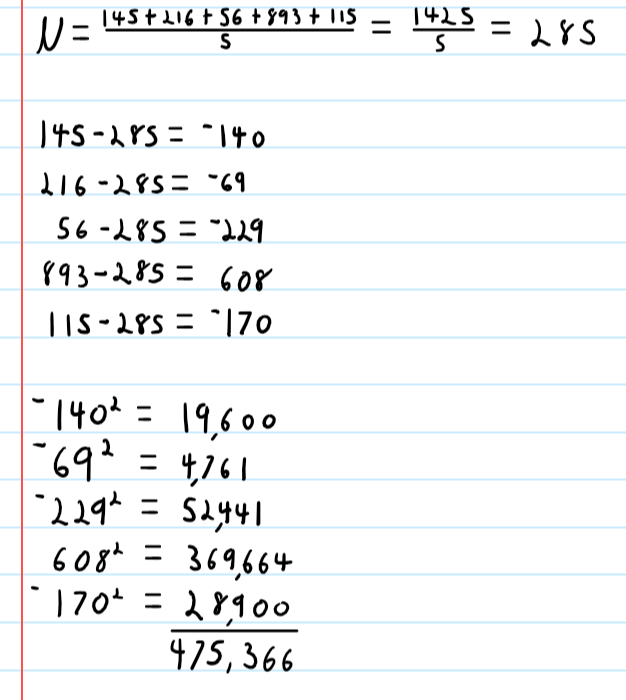 N = 145 + 216 + 56 + 893 + 115 / 5 = 1425 / 5 = 285
145 - 285 = -140
216 - 285 = -69
56 - 285 = -229
893 - 285 = 608
115 - 285 = -170
-140² = 19,600
-69² = 4,761
-229² = 52,441
608² = 369,664
-170² = 28,900
475,366